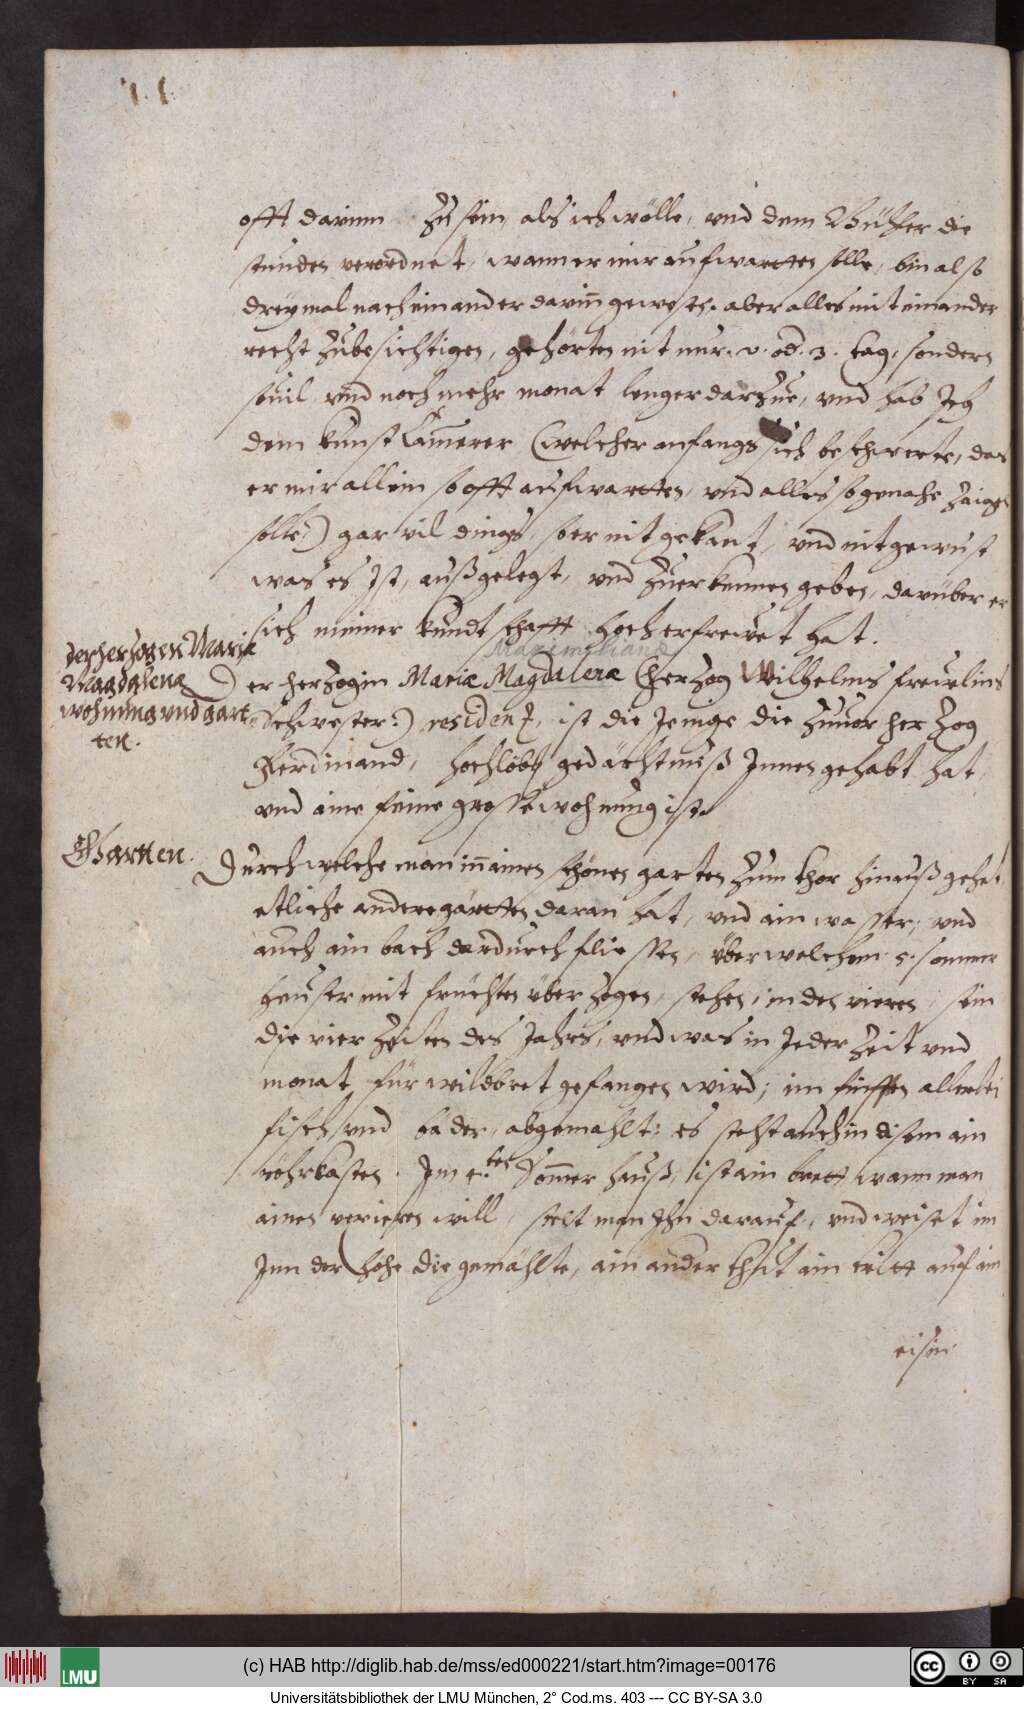 offt darinn zu sein, als ich wölle, vnd dem Büther die
stunden verordnet, wann er mir aufwartten solle, bin also
dreymal nach einander darinn gewesen. aber alles mit einander
recht zubesichtigen, gehörten nit nur .2. od. 3. tag, sondern
souil vnd noch mehr monat lenger darzue, vnd hab Jch
dem kunst Camerer (welcher anfangs sich beschwerte, das
er mir allein so offt aufwartten, vnd alles so genahe zaigen
solte:) gar vil dings, so er nit gekant, vnd nit gewust
was es Jst, außgelegt, vnd zuerkennen geben, darüber er
sich meiner kundtschafft hoch erfrewet hat.
Der herzogen Mariæ
Magdalenæ
wohnung vnd gart
ten.
Maximiliana
Der herzogin Mariæ Magdalenæ (herzog Wilhelms frewlins
Schwester:) residenz, ist die Jenige die zuuor herzog
Ferdinand, hochlöb: gedächtnuß Jnnen gehabt hat,
vnd eine feine grosse wohnung ist.
Gartten.
Durch welche man inn ainen schönen garten zum thor hinauß gehet,
etliche andere gärtten daran hat, vnd ain wasser, vnd
auch ain bach dardurch fliessen, über welchem .5. sommer
heuser mit früchten überzogen, stehen, in den vieren, sein
die vier zeiten des Jahrs, vnd was in Jeder zeit vnd
monat für wildbret gefangen wird, im fünfften allerlei
fisch vnd bäder, abgemahlt: es steht auch in disem ain
röhrkasten. Jm 4.ten Sommer hauß, ist ain brett, wann man
ainen verieren will, stelt man Jhn darauf, vnd weiset im
Jnn der höhe die gemählte, ain ander thut ain tritt auf ain
eisin
(c) HAB http://diglib.hab.de/mss/ed000221/start.htm?image=00176
LMU
BY SA
Universitätsbibliothek der LMU München, 2° Cod.ms. 403 --- CC BY-SA 3.0